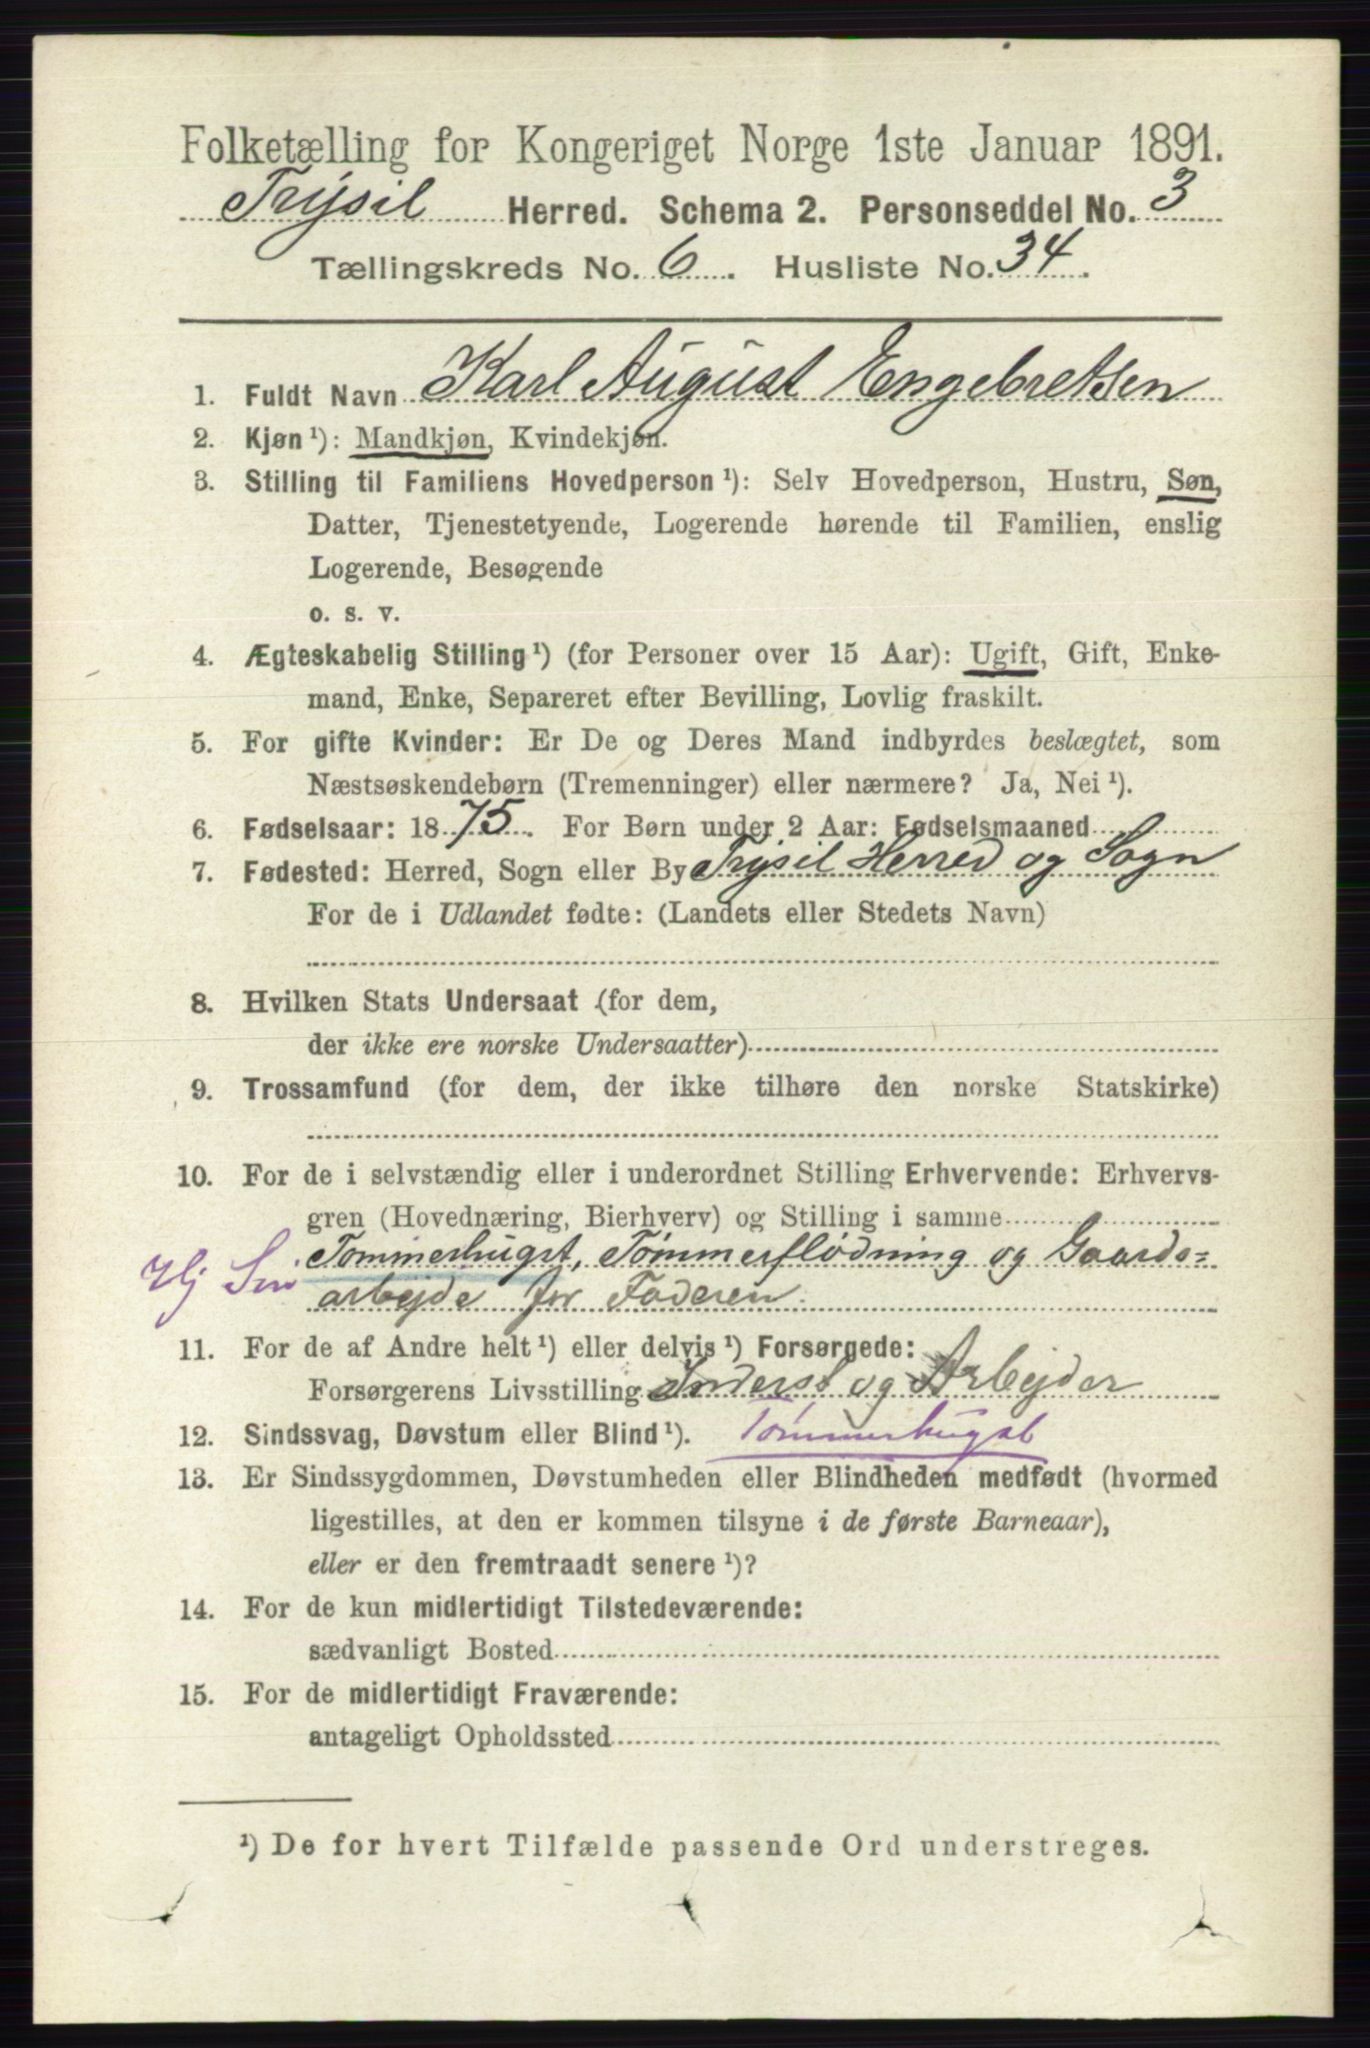 Folketælling for Kongeriget Norge 1ste Januar 1891.
Trysil Herred. Schema 2. Personseddel No. 3
Tællingskreds No. 6. Husliste No. 34.
1. Fuldt Navn Karl August Engebretsen
2. Kjøn ¹): Mandkjøn, Kvindekjøn.
3. Stilling til Familiens Hovedperson ¹): Selv Hovedperson, Hustru, Søn,
Datter, Tjenestetyende, Logerende hørende til Familien, enslig
Logerende, Besøgende
o. s. v.
4. Ægteskabelig Stilling ¹) (for Personer over 15 Aar): Ugift, Gift, Enke-
mand, Enke, Separeret efter Bevilling, Lovlig fraskilt.
5. For gifte Kvinder: Er De og Deres Mand indbyrdes beslægtet, som
Næstsøskendebørn (Tremenninger) eller nærmere? Ja, Nei ¹).
6. Fødselsaar: 1875. For Børn under 2 Aar: Fødselsmaaned
7. Fødested: Herred, Sogn eller By Trysil Herred og Sogn
For de i Udlandet fødte: (Landets eller Stedets Navn)
8. Hvilken Stats Undersaat (for dem,
der ikke ere norske Undersaatter)
9. Trossamfund (for dem, der ikke tilhøre den norske Statskirke)
10. For de i selvstændig eller i underordnet Stilling Erhvervende: Erhvervs-
gren (Hovednæring, Bierhverv) og Stilling i samme
Hj Søn Tømmerhugst, Tømmerflødning og Gaards=
arbejde for Faderen.
11. For de af Andre helt ¹) eller delvis ¹) Forsørgede:
Forsørgerens Livsstilling Inderst og Arbejder
12. Sindssvag, Døvstum eller Blind ¹). Tømmerhugst
13. Er Sindssygdommen, Døvstumheden eller Blindheden medfødt (hvormed
ligestilles, at den er kommen tilsyne i de første Barneaar),
eller er den fremtraadt senere ¹)?
14. For de kun midlertidigt Tilstedeværende:
sædvanligt Bosted
15. For de midlertidigt Fraværende:
antageligt Opholdssted
¹) De for hvert Tilfælde passende Ord understreges.